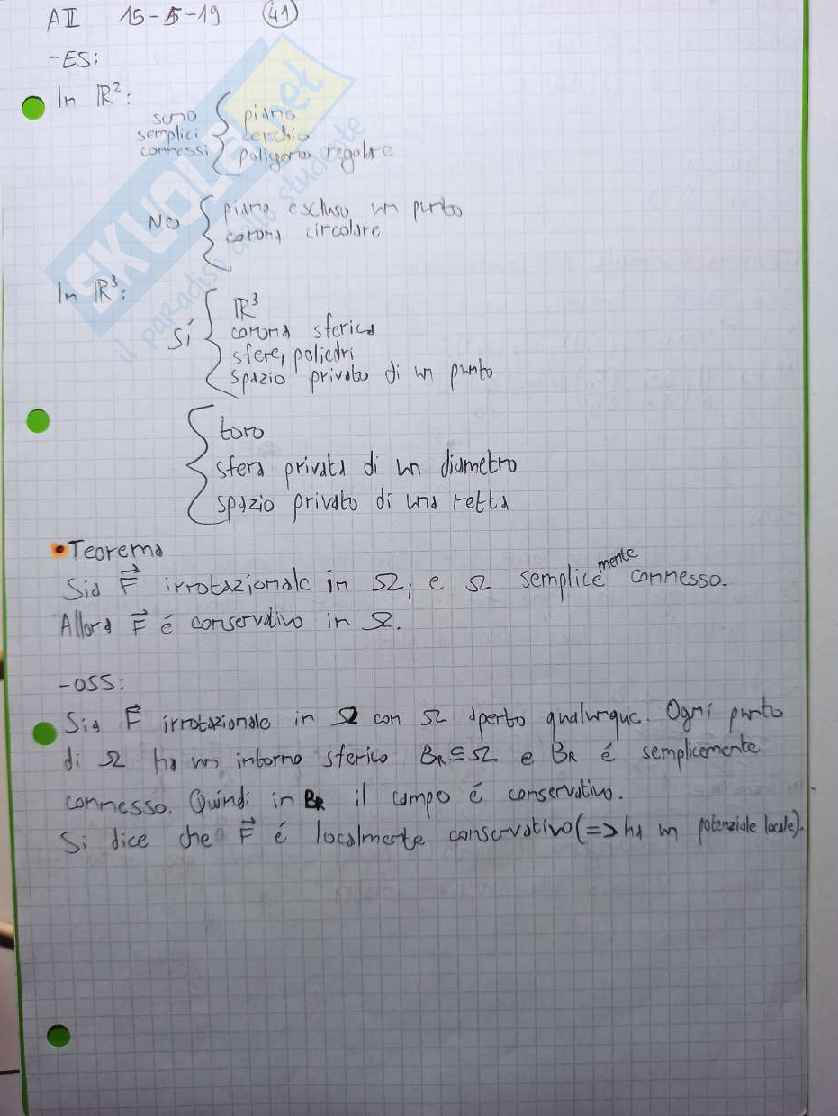 AII 15-5-19 41
-ES:
In ℝ²:
sono semplici connessi { piano
cerchio
poligono regolare
No { piano escluso un punto
corona circolare
In ℝ³:
Sí { ℝ³
corona sferica
sfere, poliedri
spazio privato di un punto
{ toro
sfera privata di un diametro
spazio privato di una retta
Teorema
Sia F⃗ irrotazionale in Ω, e Ω semplicemente connesso.
Allora F⃗ é conservativo in Ω.
-OSS:
Sia F⃗ irrotazionale in Ω con Ω aperto qualunque. Ogni punto
di Ω ha un intorno sferico BR ⊆ Ω e BR é semplicemente
connesso. Quindi in BR il campo é conservativo.
Si dice che F⃗ é localmente conservativo (=> ha un potenziale locale).
SKUOLA.net
il paradiso dello studente